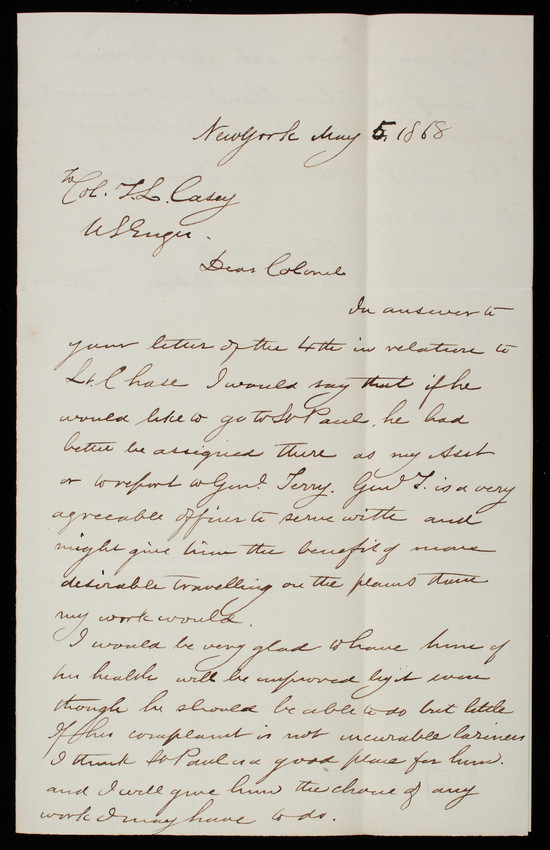 New York May 5, 1868
To Col. T. L. Casey
U S Engrs.
Dear Colonel
In answer to
your letter of the 4th in relation to
Lt. Chase I would say that if he
would like to go to St Paul, he had
better be assigned there as my Asst
or to report to Genl. Terry. Genl T. is a very
agreeable officer to serve with and
might give him the benefit of more
desirable travelling on the plains than
my work would.
I would be very glad to have him if
his health will be improved by it even
though he should be able to do but little
If his complaint is not incurable laziness
I think St Paul is a good place for him.
and I will give him the choice of any
work I may have to do.